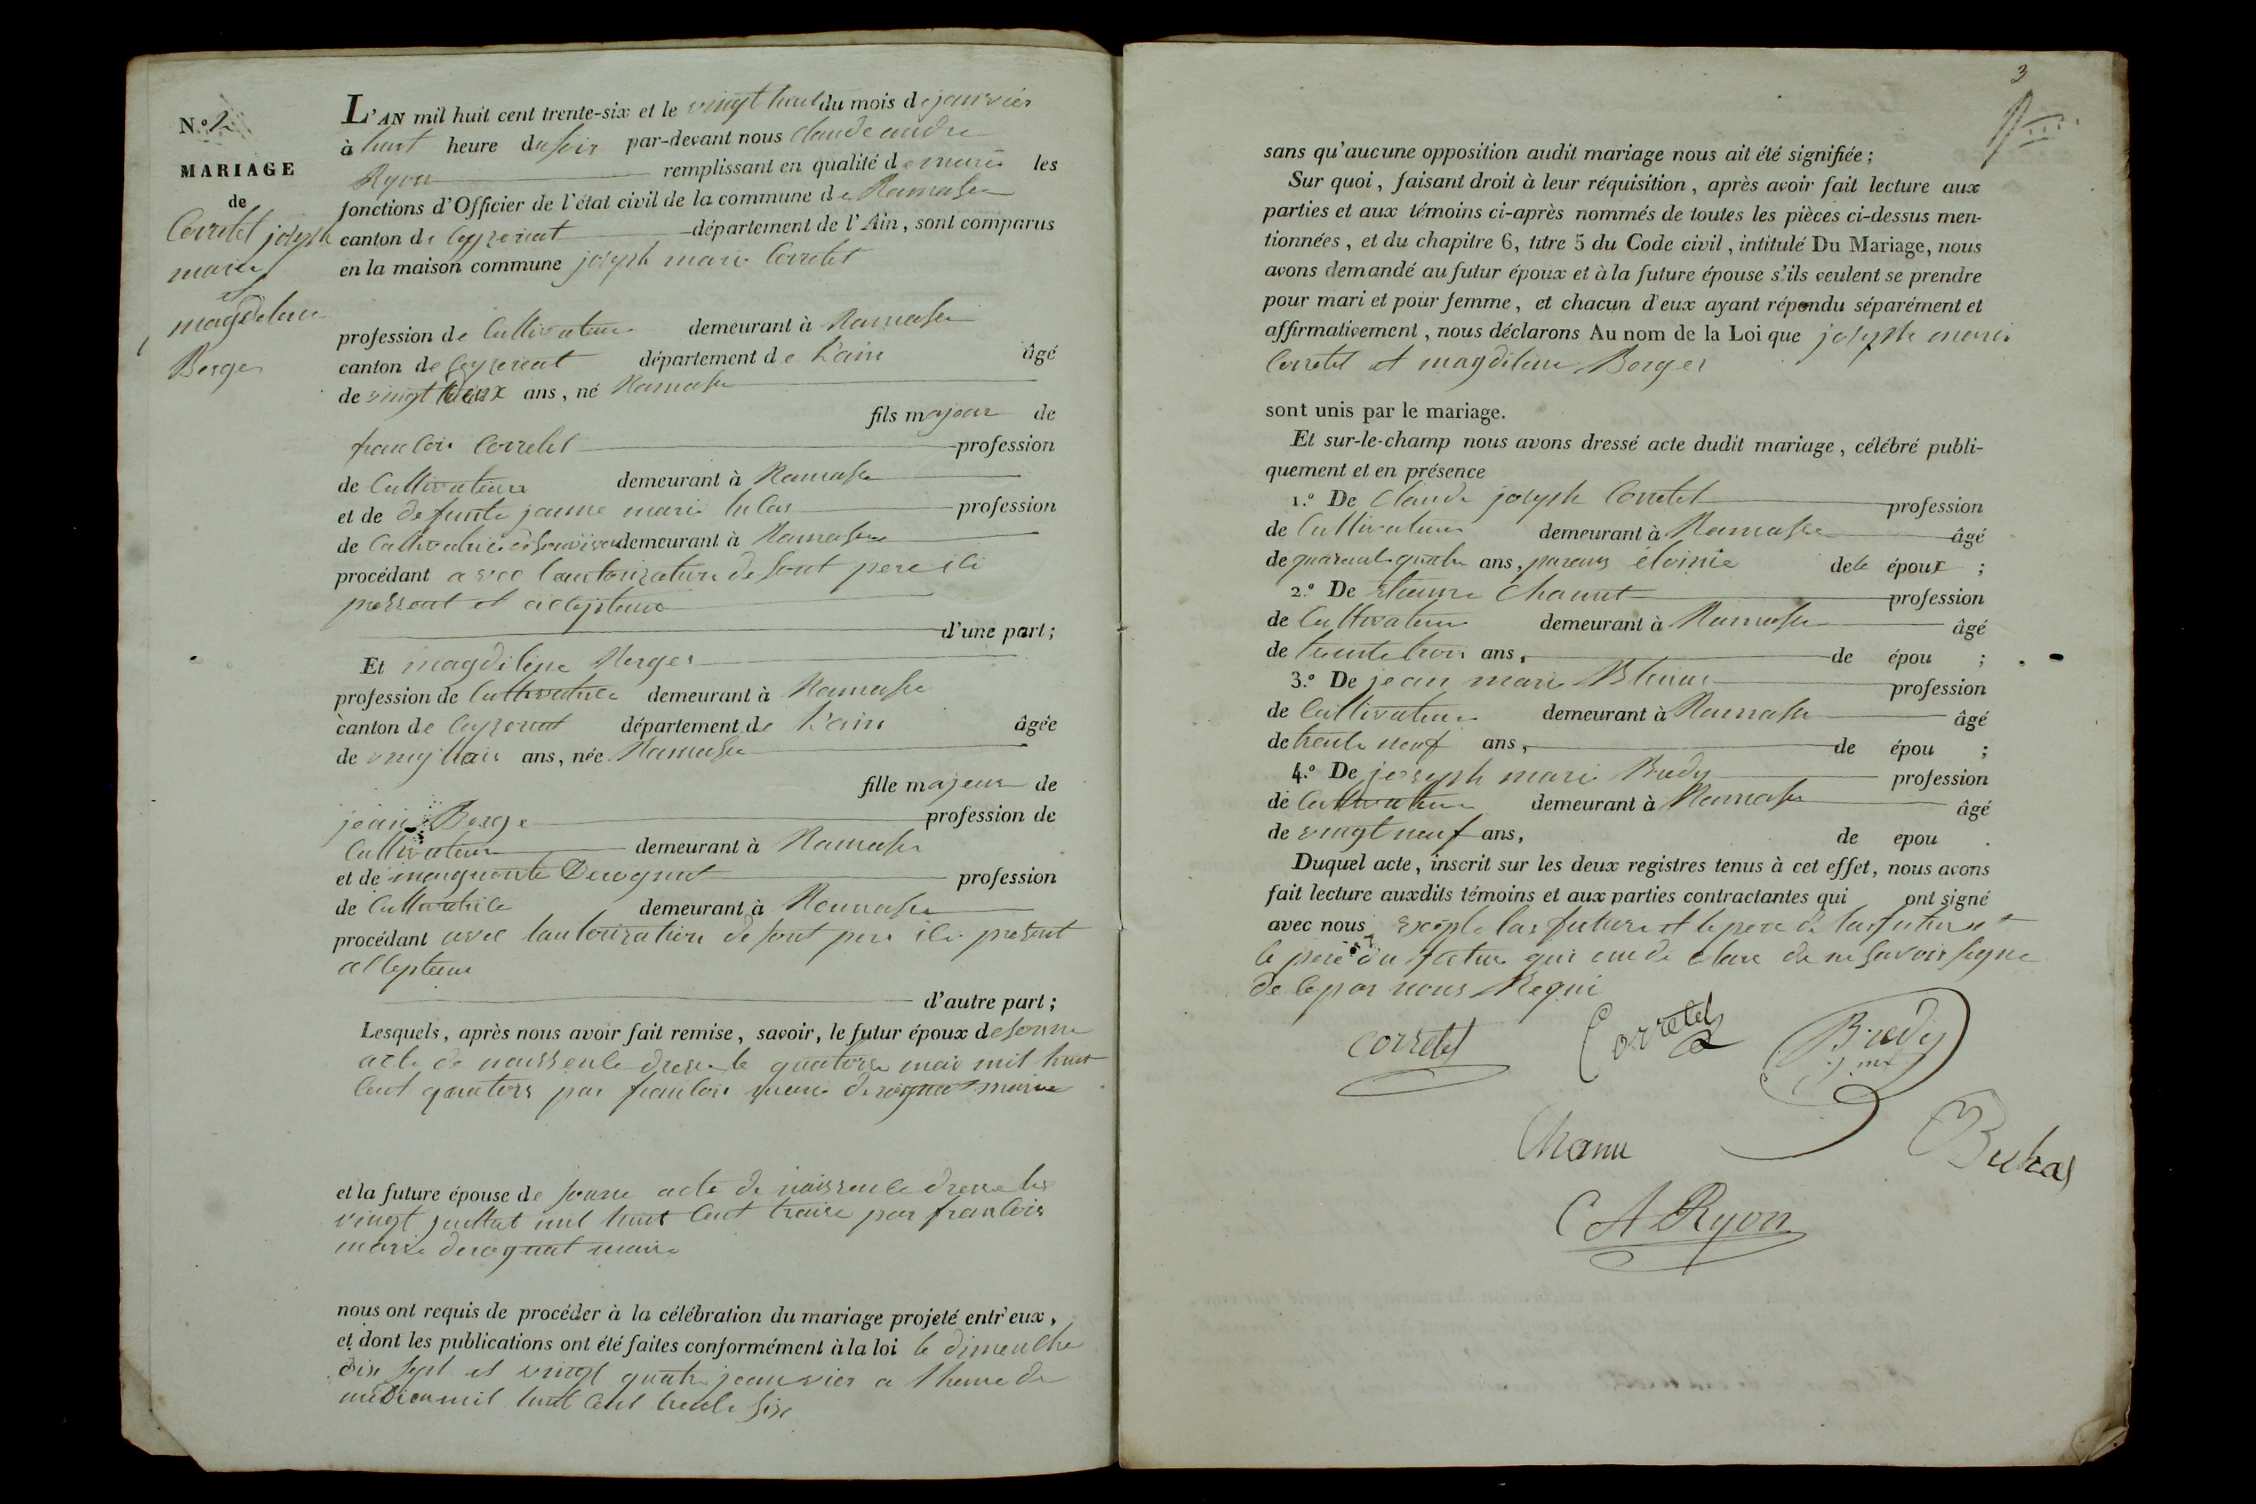 N.º 2
MARIAGE
de
Corretel joseph
marie
et
magdelene
Berger
L'AN mil huit cent trente-six et le vingt huit du mois de janvier
à huit heure du soir par-devant nous Claude andre
Ryon remplissant en qualité de maire les
fonctions d'Officier de l'état civil de la commune de Ramasse
canton de Ceyzeriat département de l'Ain, sont comparus
en la maison commune joseph marie Corretel
profession de Cultivateur demeurant à Ramasse
canton de Ceyzeriat département de L'ain âgé
de vingt deux ans, né Ramasse
fils majeur de
francois Corretel profession
de Cultivateur demeurant à Ramasse
et de defunte jeanne marie profession
de demeurant à Ramasse
procédant avec lautorization de sont pere ici
pressent et acceptant
d'une part;
Et magdelene Berger
profession de Cultivatrice demeurant à Ramasse
canton de Ceyzeriat département de L'ain âgée
de ans, née Ramasse
fille majeur de
jean Berge profession de
Cultivateur demeurant à Ramasse
et de marguerite Derognat profession
de Cultivatrice demeurant à Ramasse
procédant avec lautorization de sont pere ici present
acceptant
d'autre part;
Lesquels, après nous avoir fait remise, savoir, le futur époux de sonne
acte de naissence dresse le quatorze mai mil huit
cent quatorz par francois marie derognat maire
et la future épouse de sonne acte de naissence dresse le
vingt juillat mil huit cent traise par francois
marie derognat maire
nous ont requis de procéder à la célébration du mariage projeté entr'eux,
et dont les publications ont été faites conformément à la loi le dimenche
dix sept et vingt quatre jeanvier a lheure de
midi en mil huit cent trente six
3
sans qu'aucune opposition audit mariage nous ait été signifiée;
Sur quoi, faisant droit à leur réquisition, après avoir fait lecture aux
parties et aux témoins ci-après nommés de toutes les pièces ci-dessus men-
tionnées, et du chapitre 6, titre 5 du Code civil, intitulé Du Mariage, nous
avons demandé au futur époux et à la future épouse s'ils veulent se prendre
pour mari et pour femme, et chacun d'eux ayant répondu séparément et
affirmativement, nous déclarons Au nom de la Loi que joseph marie
Corretel et magdelene Berger
sont unis par le mariage.
Et sur-le-champ nous avons dressé acte dudit mariage, célébré publi-
quement et en présence
1.º De Claude joseph Corretel profession
de Cultivateur demeurant à Ramasse âgé
de quarente quatre ans, parens éloinie de le époux ;
2.º De etienne Chanut profession
de Cultivateur demeurant à Ramasse âgé
de trente trois ans, de épou ;
3.º De jean marie profession
de Cultivateur demeurant à Ramasse âgé
de trente neuf ans, de épou ;
4.º De joseph marie Bredy profession
de Cultivateur demeurant à Ramasse âgé
de vingt neuf ans, de epou .
Duquel acte, inscrit sur les deux registres tenus à cet effet, nous avons
fait lecture auxdits témoins et aux parties contractantes qui ont signé
avec nous exepte la future et le pere de la future et
le pere du futur qui de ne savoir signe
de ce par nous Requi
Corretel Corretel Bredy
j. m
Chanu
C A Ryon